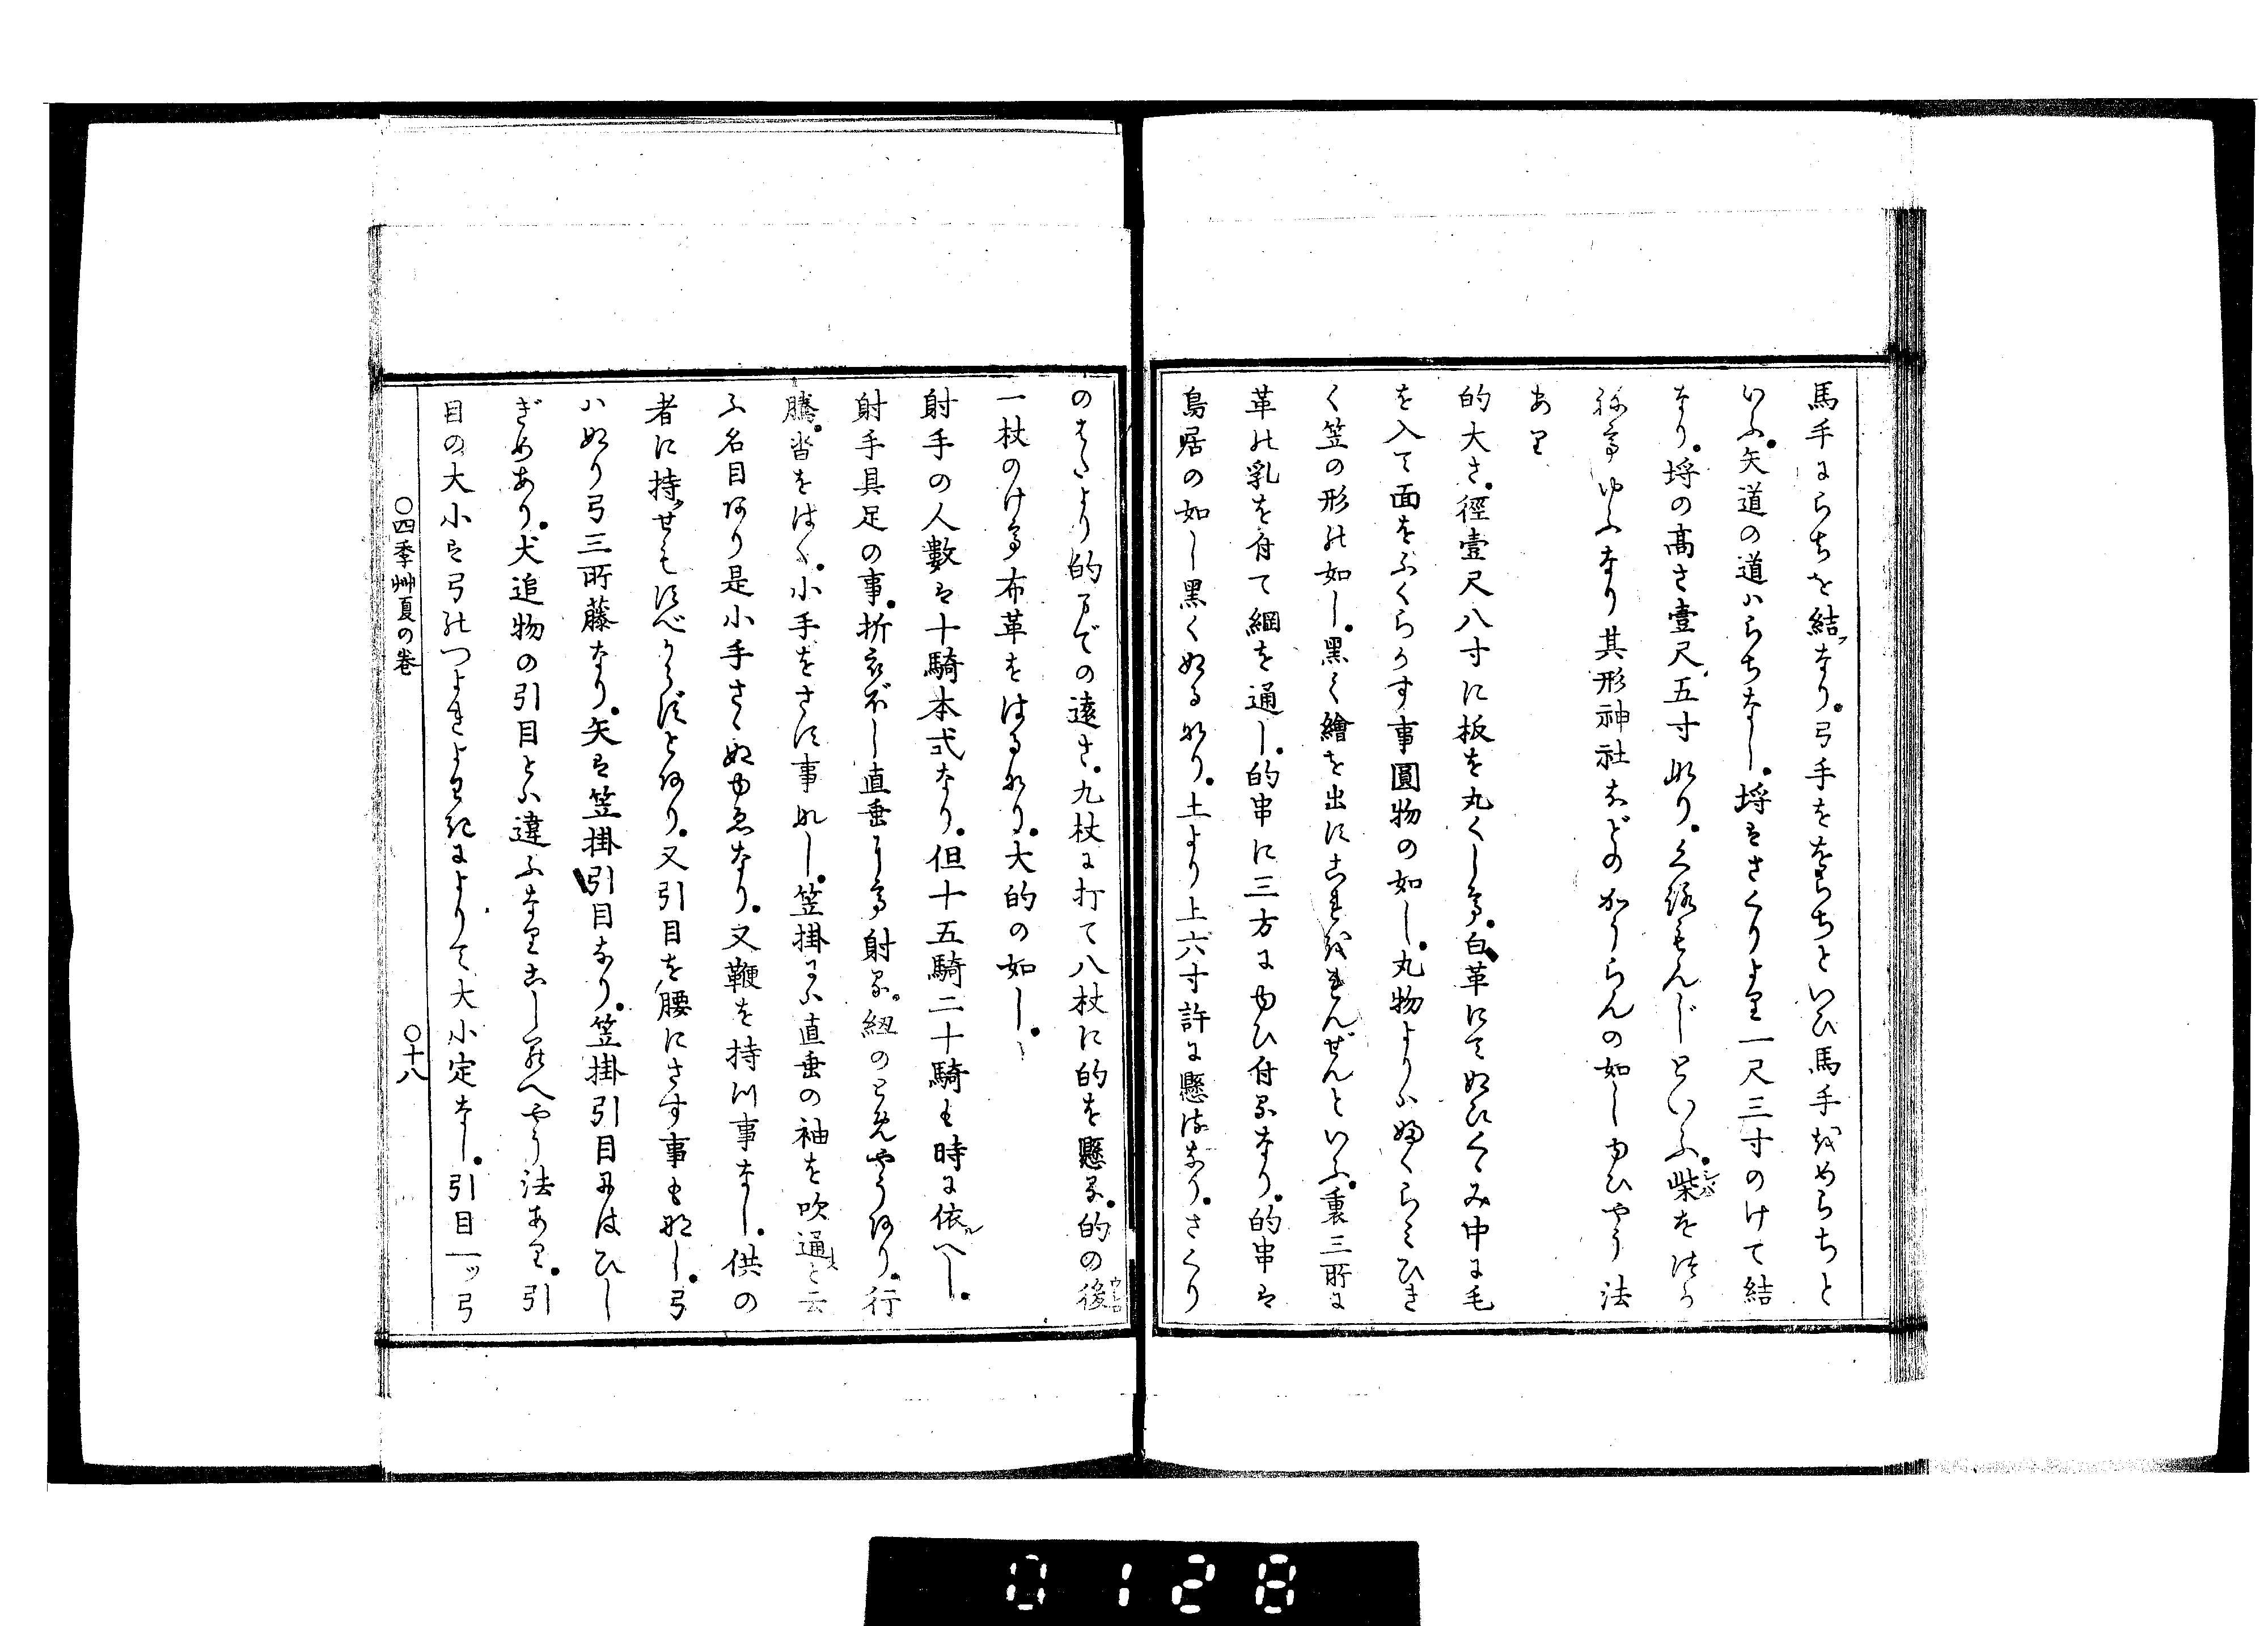 馬手にらちを結フなり。弓手ををらちといひ馬手をめらちと
いふ。矢道の道ハらちなし。埒はさくりより一尺三寸のけて結
なり。埒の高さ壹尺五寸なり。くろもんじといふ。柴シバをほそ
ゆふなり其形神社などのかうらんの如しゆひやう法
あり
的大さ。徑壹尺八寸に板を丸くして。白革にてぬひくゝみ中に毛
を入て面をふくらかす事圓物の如し。丸物よりハふくらミひき
く笠の形の如し。黒く繪を出に。裏三所に
革の乳を付て綱を通し。的串に三方にゆひ付るなり。的串は
鳥居の如し黒くぬるなり。土より上六寸許に懸るなり。さくり
のきハより的までの遠さ。九杖に打て八杖に的を懸る。的の後
一杖のけて布革をはるなり。大的の如し。
射手の人數は十騎本式なり。但十五騎二十騎も時に依ルへし。
射手具足の事。折烏帽子直垂にて射る。紐のとめやうあり。行
騰。沓をはく。小手をさす事なし。笠掛にハ直垂の袖を吹通と云
ふ名目あり是小手さゝぬゆゑなり。又鞭を持川事なし。供の
者に持せもすべからずとあり。又引目を腰にさす事も那し。弓
ハぬり弓三所藤なり。矢は笠掛引目なり。笠掛引目はひし
ぎめあり。犬追物の引目とハ違ふなりこしらへやう法あり。引
目の大小は弓のつよきよわきによりて大小定なし。引目一ッ弓
〇四季艸夏の巻
〇十八
0128